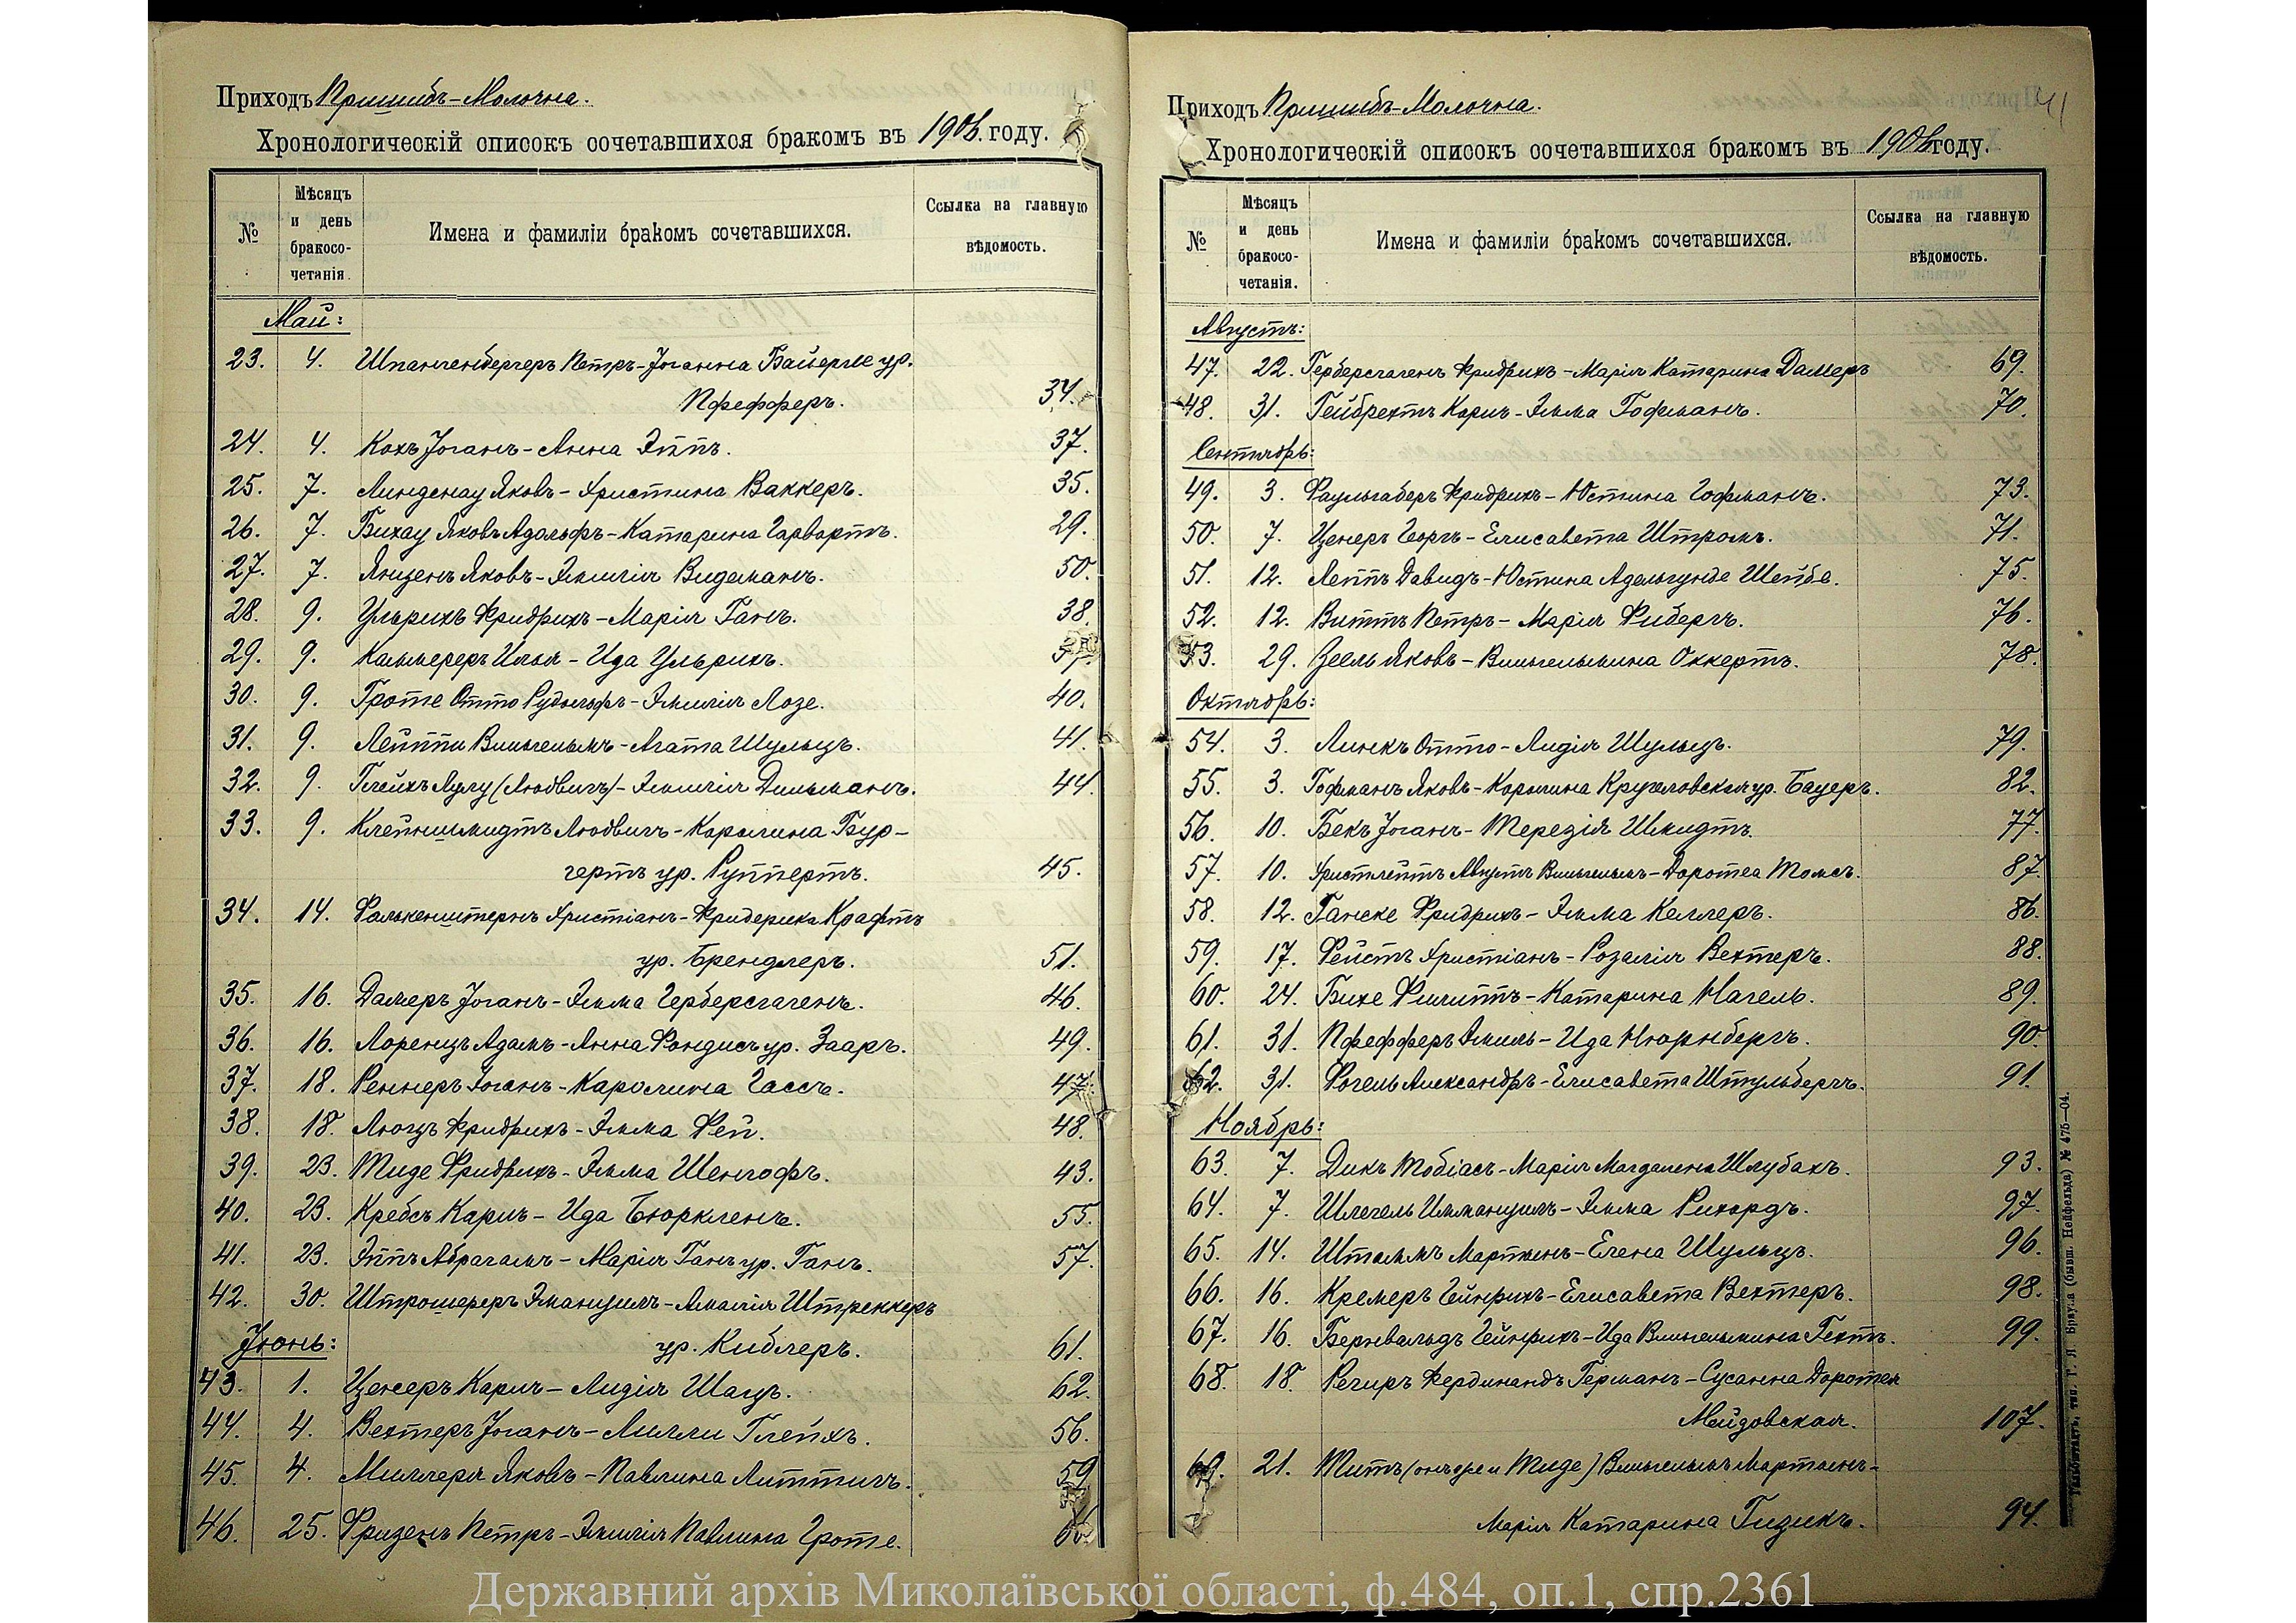 Приходъ Пришибъ-Молочна.
Хронологическій списокъ сочетавшихся бракомъ въ 1906. году.
№ Мѣсяцъ и день бракосо- четанія. Имена и фамиліи бракомъ сочетавшихся. Ссылка на главную вѣдомость.
Май:
23. 4. Шпангенбергеръ Петръ-Іоганна Байерле ур.
Пфефферъ. 34.
24. 4. Кохъ Іоганъ-Анна Эппъ. 37.
25. 7. Линденау Яковъ-Христина Ваккеръ. 35.
26. 7. Бихау Яковъ Адольфъ-Катарина Гарвартъ. 29.
27. 7. Янценъ Яковъ-Эмилія Видеманъ. 50.
28. 9. Ульрихъ Фридрихъ-Марія Ганъ. 38.
29. 9. Каммереръ Илья-Ида Ульрихъ.
30. 9. Гроте Отто Рудольфъ-Эмилія Лозе. 40.
31. 9. Лейппи Вильгельмъ-Агата Шульцъ. 41.
32. 9. Глейхъ Лулу (Людвигъ)-Эмилія Дильманъ. 44.
33. 9. Клейншмидтъ Людвигъ-Каролина Бур-
гертъ ур. Руппертъ. 45.
34. 14. Фалькенштернъ Христіанъ-Фридерика Крафтъ
ур. Брендлеръ. 51.
35. 16. Дамеръ Іоганъ-Эмма Герберсгагенъ. 46.
36. 16. Лоренцъ Адамъ-Анна Фондисъ ур. Зааръ. 49.
37. 18. Реннеръ Іоганъ-Каролина Гассъ. 47.
38. 18. Люцъ Фридрихъ-Эмма Фей. 48.
39. 23. Тиде Фридрихъ-Эмма Шенгофъ. 43.
40. 23. Кребсъ Карлъ-Ида Бюркленъ. 55.
41. 23. Эппъ Абрагамъ-Марія Ганъ ур. Ганъ. 57.
42. 30. Штрошереръ Эмануилъ-Амалія Штреккеръ
Іюнь: ур. Киблеръ. 61.
43. 1. Ценеръ Карлъ-Лидія Шацъ. 62.
44. 4. Вехтеръ Іоганъ-Лилли Глейхъ. 56.
45. 4. Миллеръ Яковъ-Павлина Литтигъ. 59
46. 25. Фризенъ Петръ-Эмилія Павлина Гроте.
Приходъ Пришибъ-Молочна. 41
Хронологическій списокъ сочетавшихся бракомъ въ 1906 году.
№ Мѣсяцъ и день бракосо- четанія. Имена и фамиліи бракомъ сочетавшихся. Ссылка на главную вѣдомость.
Августъ:
47. 22. Герберсгагенъ Фридрихъ-Марія Катарина Дамеръ 69.
48. 31. Гейбрехтъ Карлъ-Эмма Гофманъ. 70.
Сентябрь:
49. 3. Фаульгаберъ Фридрихъ-Юстина Гофманъ. 73.
50. 7. Ценеръ Георгъ-Елисавета Штромъ. 71.
51. 12. Леппъ Давидъ-Юстина Адельгунде Шейбе. 75.
52. 12. Виттъ Петръ-Марія Фибергъ. 76.
53. 29. Зеель Яковъ-Вильгельмина Оккертъ. 78.
Октябрь:
54. 3. Линкъ Отто-Лидія Шульцъ. 79.
55. 3. Гофманъ Яковъ-Каролина Кругловская ур. Бауеръ. 82.
56. 10. Бекъ Іоганъ-Терезія Шмидтъ. 77.
57. 10. Христлейпъ Августъ Вильгельмъ-Доротеа Томсъ. 87.
58. 12. Ганске Фридрихъ-Эмма Келлеръ. 86.
59. 17. Фейстъ Христіанъ-Розалія Вехтеръ. 88.
60. 24. Бихе Филиппъ-Катарина Нагель. 89.
61. 31. Пфефферъ Эмиль-Ида Нюрнбергъ. 90.
62. 31. Фогель Александръ-Елисавета Штульбергъ. 91.
Ноябрь:
63. 7. Дикъ Тобіасъ-Марія Магдалена Шлубахъ. 93.
64. 7. Шлегель Иммануилъ-Эмма Рихардъ. 97.
65. 14. Штаммъ Мартинъ-Елена Шульцъ. 96.
66. 16. Кремеръ Гейнрихъ-Елисавета Вехтеръ. 98.
67. 16. Бернвальдъ Гейнрихъ-Ида Вильгельмина Гехтъ. 99.
68. 18. Региръ Фердинандъ Германъ-Сусанна Доротея
Мейдовская. 107.
69. 21. Титъ (онъ же и Тиде) Вильгельмъ Мартинъ-
Марія Катарина Гизикъ. 94.
тип. Г. Л. Брауна (бывш. Нейфельда) № 475—04.
Державний архів Миколаївської області, ф.484, оп.1, спр.2361